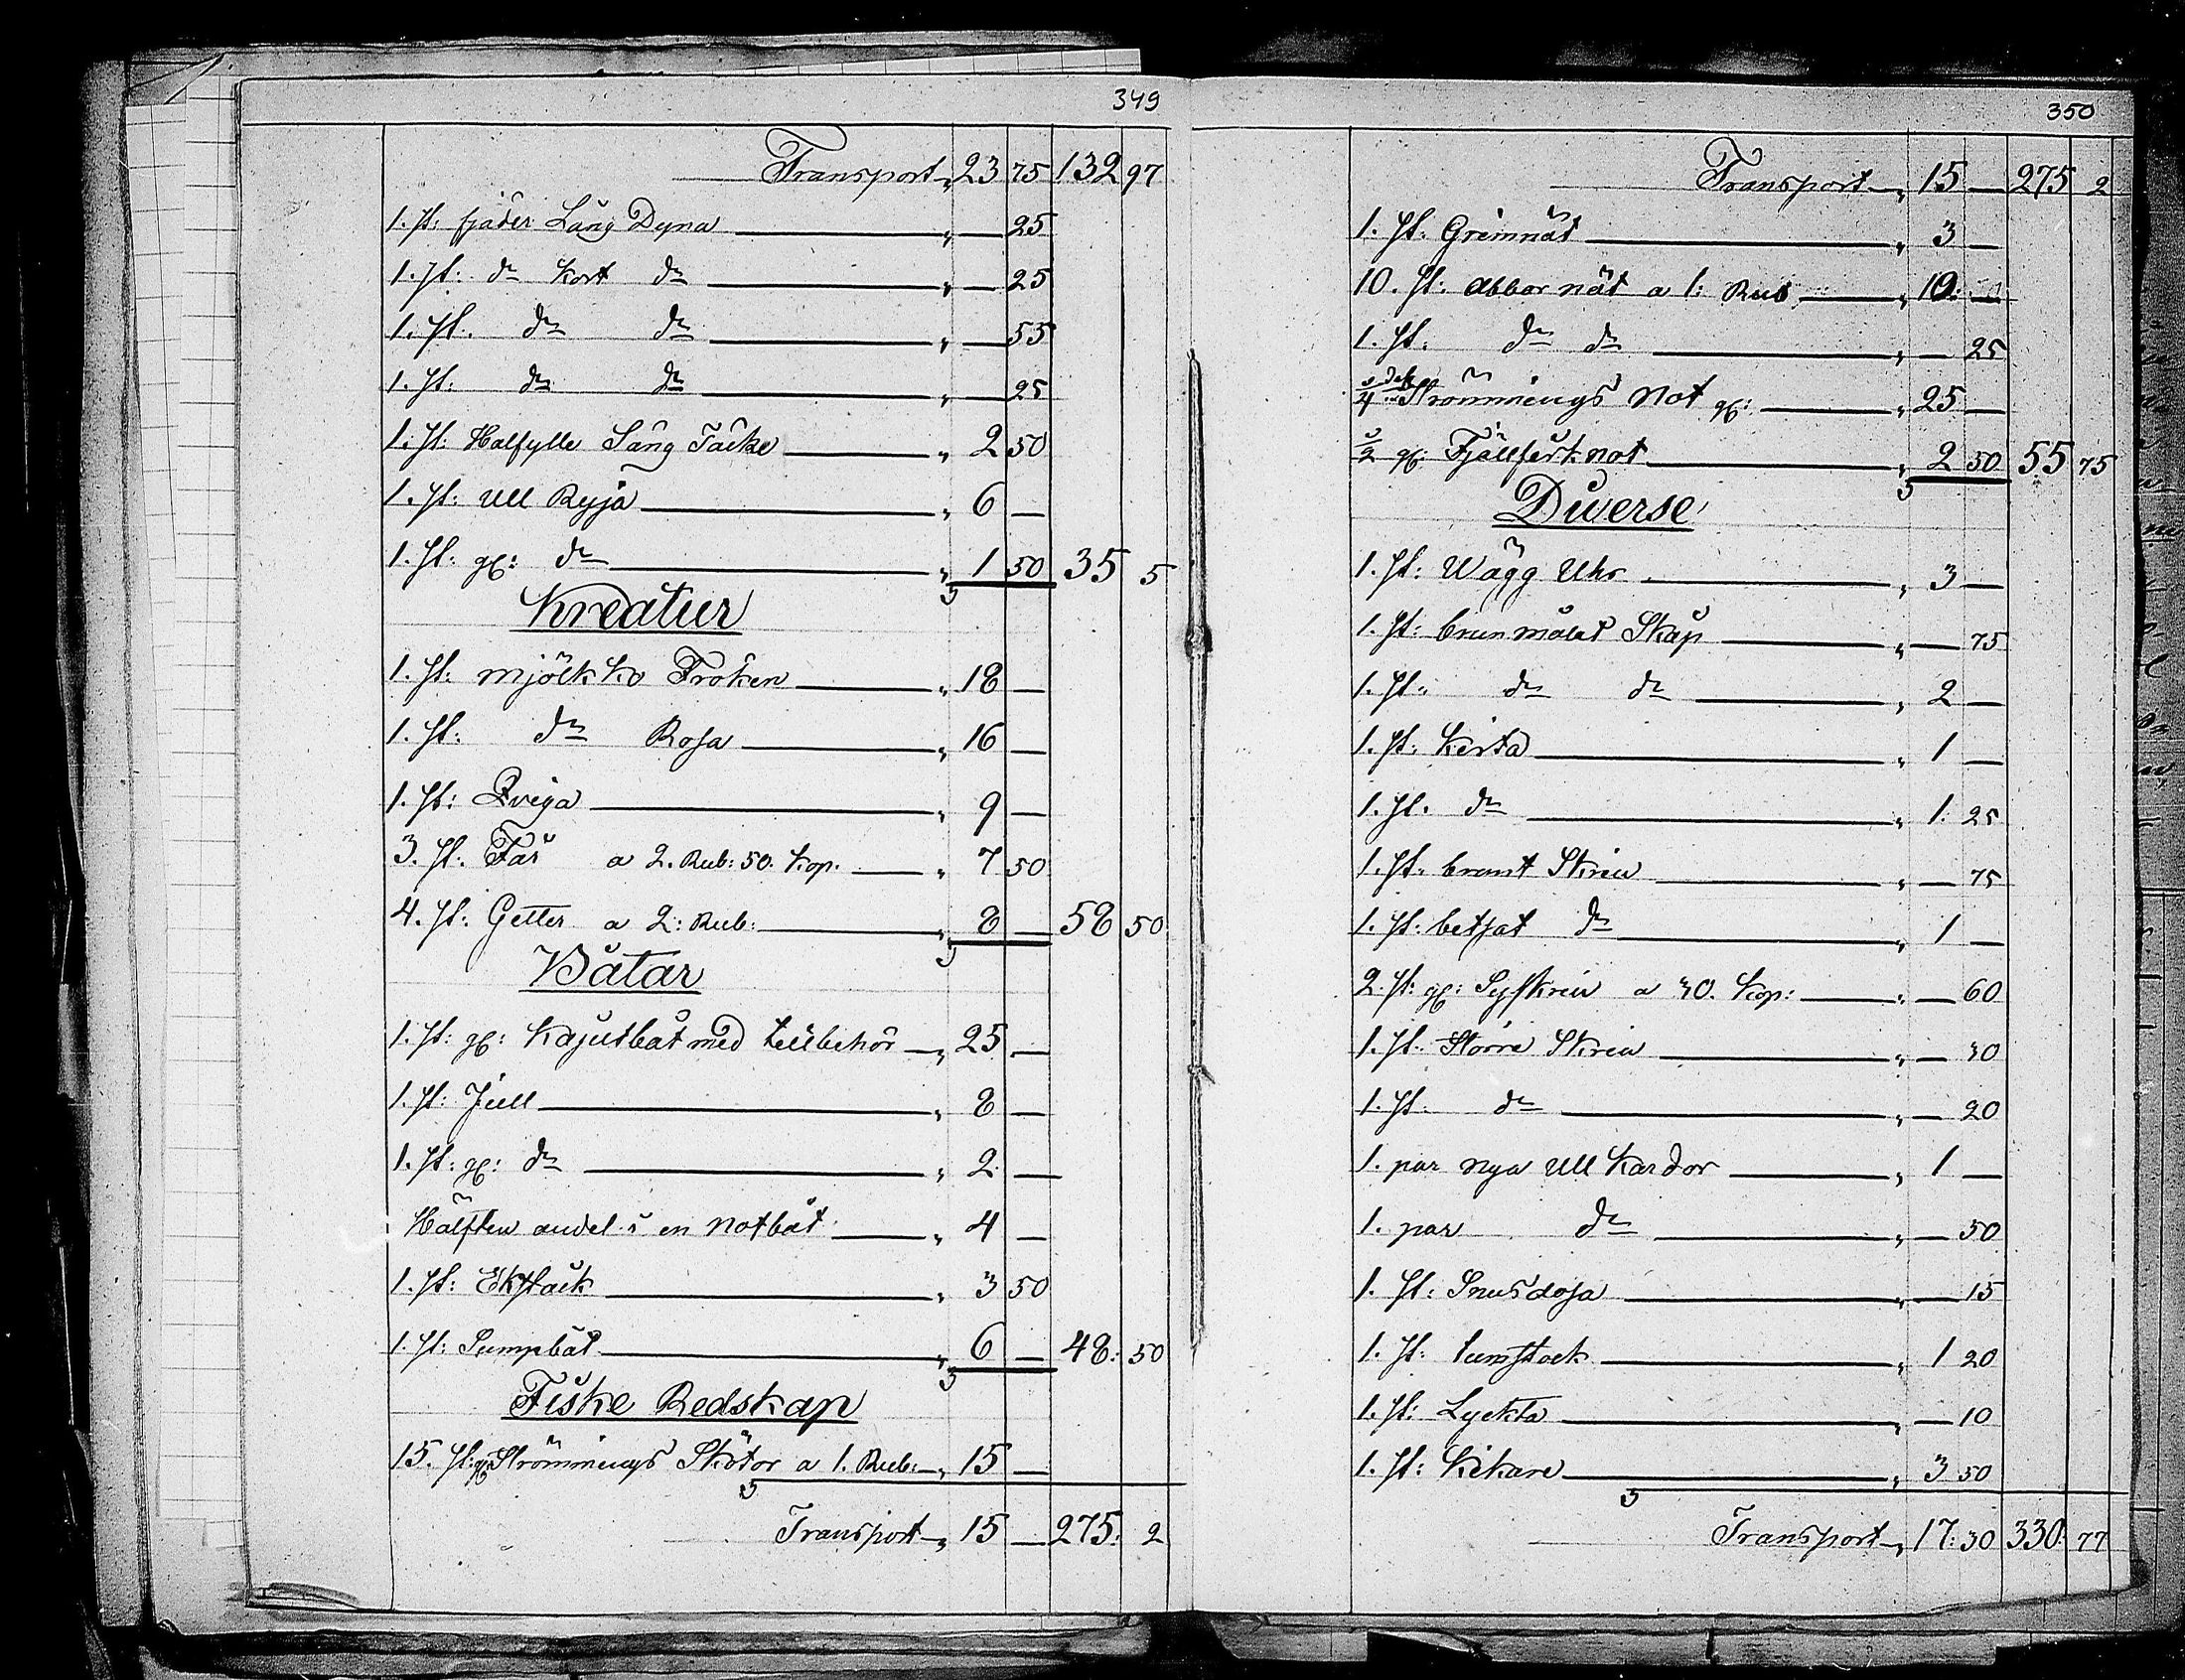 349
Transport „ 23 75 132 97
1. st: fjäder Lång Dyna „ — 25
1. st: do Kort do „ — 25
1. st. do do „ — 55
1. st: do do „ — 25
1. st: Halfylle Säng Täcke „ 2 50
1. st: Ull Ryja „ 6 —
1. st. gl: do „ 1 50 35 5
Kreatur
1. st: mjölk ko Fröken „ 18 —
1. st: do Rosa „ 16 —
1. st: Qviga „ 9 —
3. st. Får a 2. Rub: 50. Kop. „ 7 50
4. st: Getter a 2: Rub: „ 8 — 58 50
Båtar
1. st: gl: Kajutbåt med tillbehör „ 25 —
1. st: Jull „ 8 —
1. st: gl: do „ 2. —
Hälften andel i en notbåt „ 4 —
1. st: Ekstock „ 3 50
1. st: Sumpbåt „ 6 — 48: 50
Fiske Redskap
15. st: gl: Strömmings Skötor a 1. Rub: „ 15 —
Transport „ 15 — 275: 2
350
Transport „ 15 — 275 2
1. st. Grimnät „ 3 —
10. st: abbor nät a 1: Rub „ 10: —
1. st. do do „ — 25
Strömmings Not gl: „ 25 —
1/2 gl: Fjällfisk not „ 2 50 55 75
Diverse
1. st: Wägg Uhr „ 3 —
1. st: brun målat Skåp „ — 75
1. st: do do „ 2 —
1. st: Kista „ 1 —
1. st. do „ 1: 25
1. st: brunt Skrin „ — 75
1. st: betsat do „ 1 —
2. st: gl: Syskrin a 30. Kop: „ — 60
1. st. Större Skrin „ — 30
1. st. do „ — 20
1. par nya Ull Kardor „ 1 —
1. par do „ — 50
1. st: Snusdosa „ — 15
1. st: tumstock „ 1 20
1. st: Lyckta „ — 10
1. st: Kikare „ 3 50
Transport „ 17: 30 330: 77